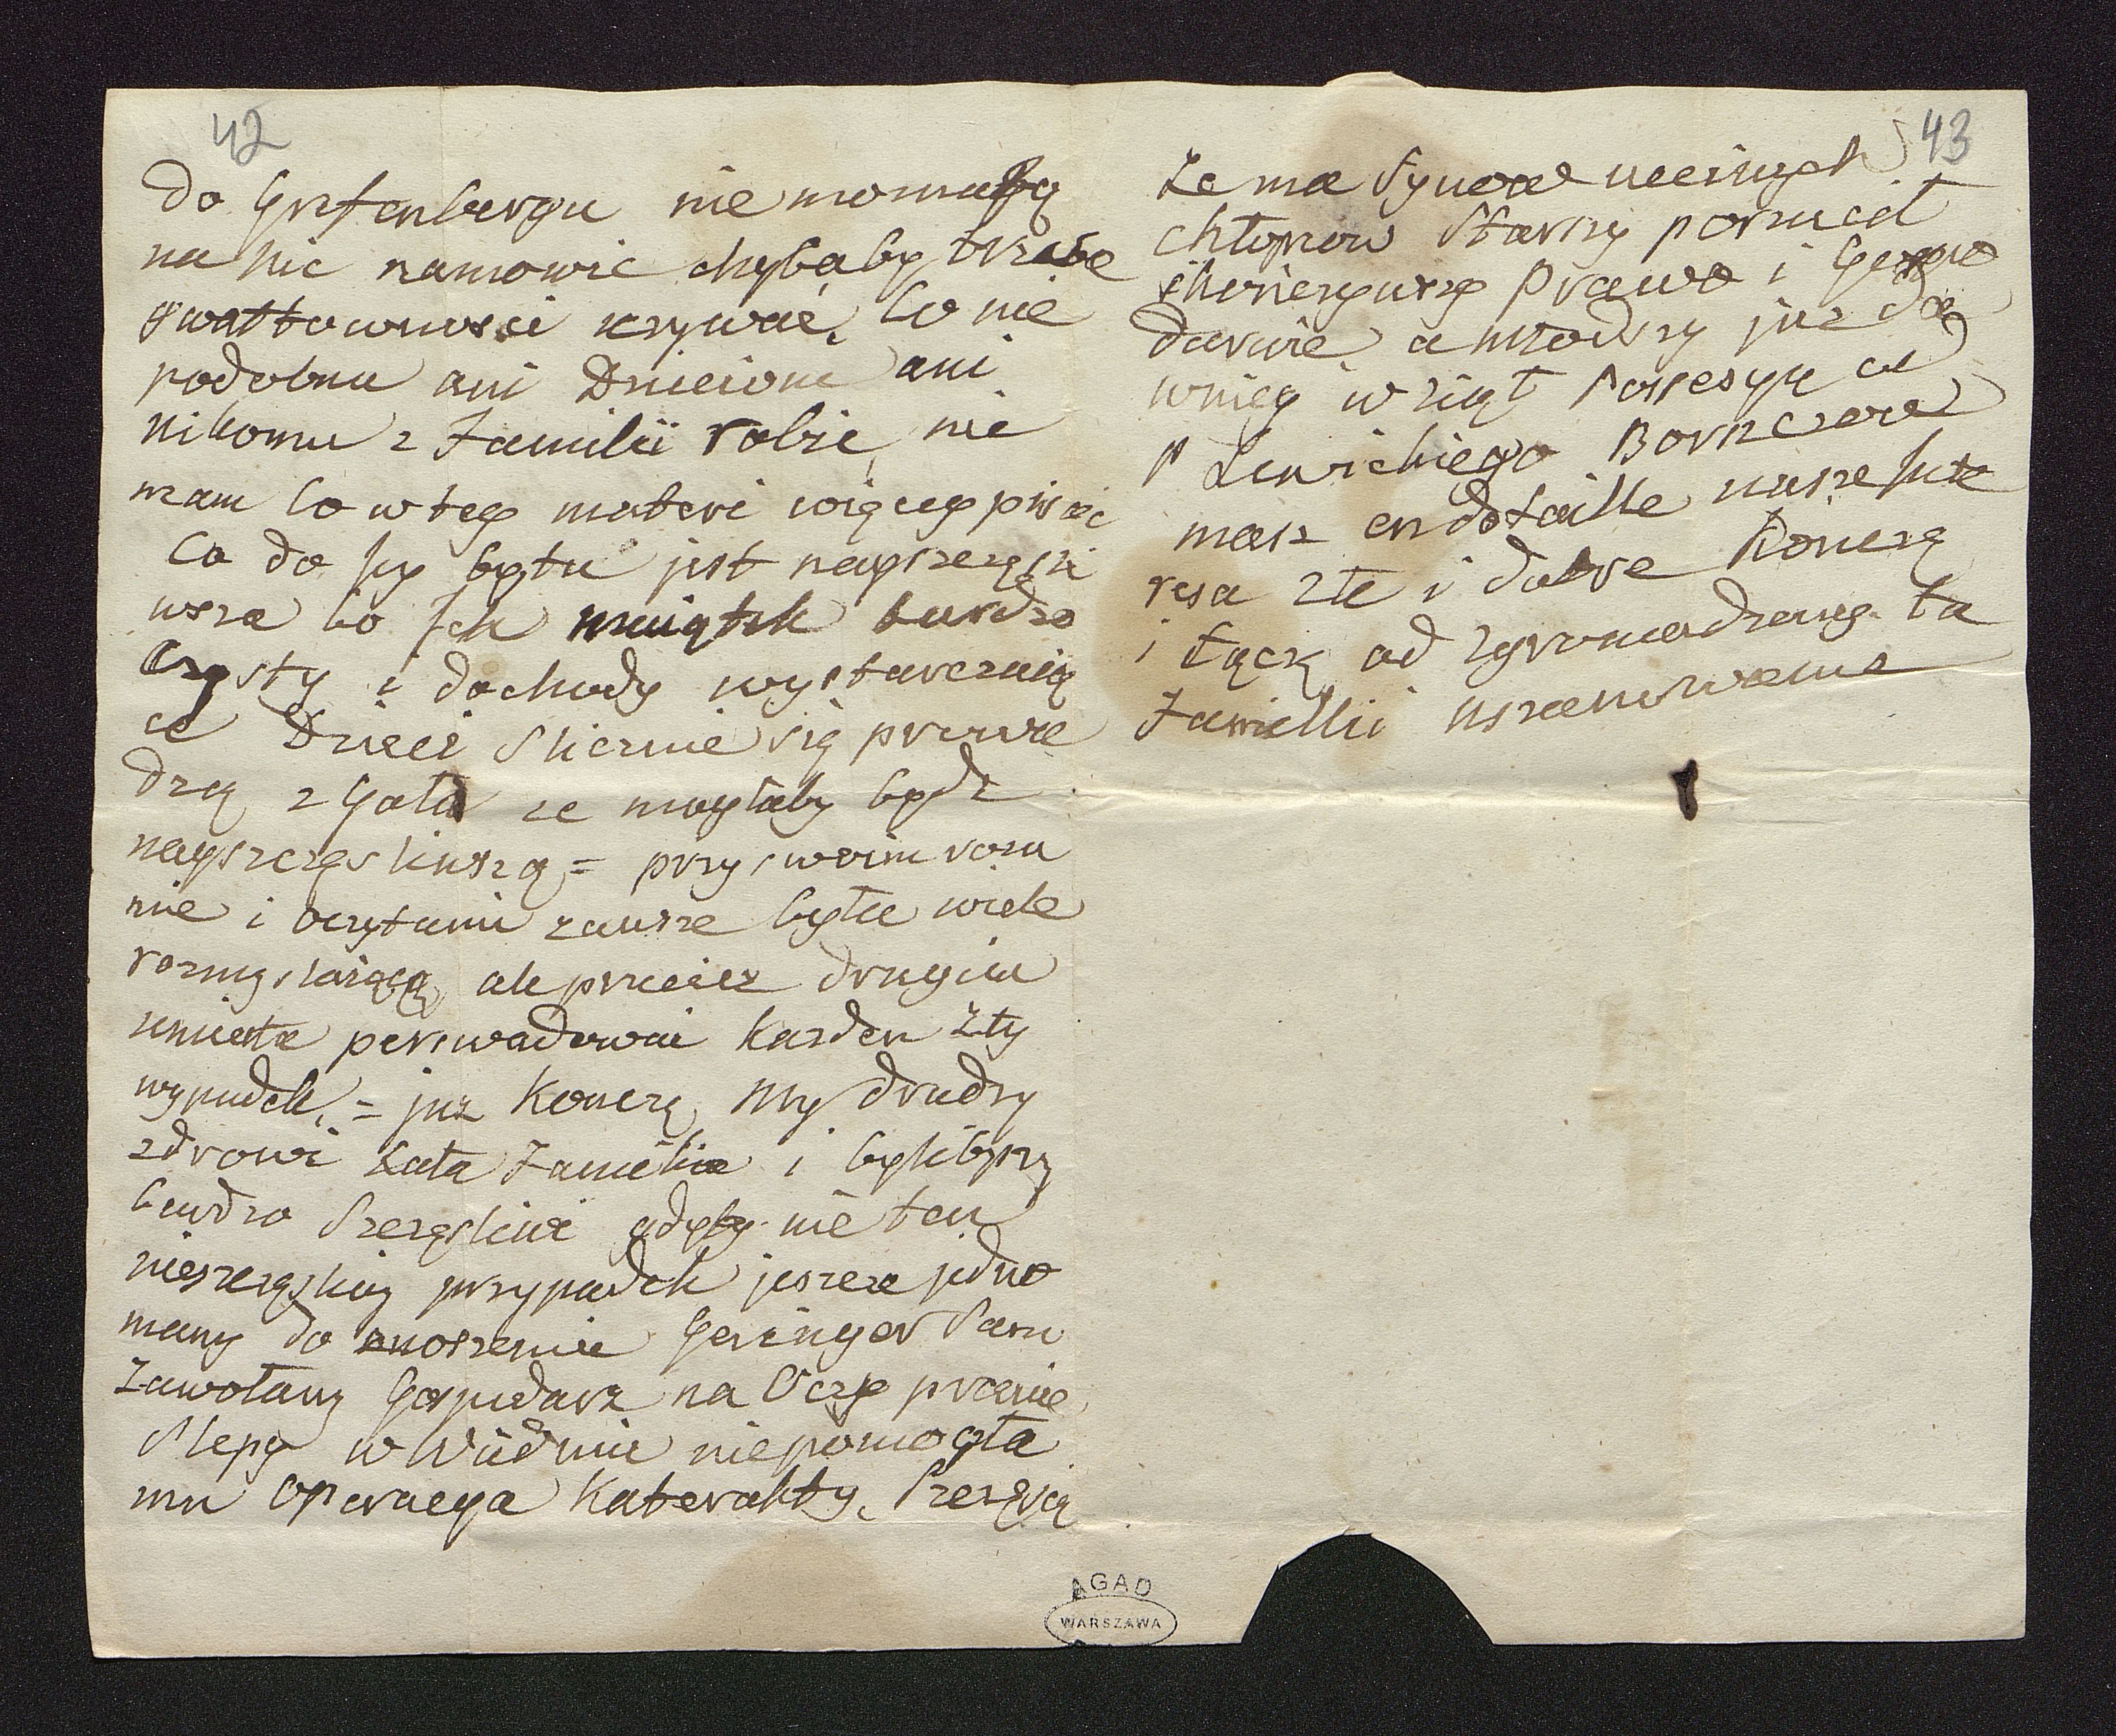 42
do Grefenbergu nie momażą
na nic namowic chybaby trzeba
gwałtownosci uzywac, co nie
podobna ani Dzieciom ani
nikomu z Familii robic, nie
mam co w tey materi więcey pisac
Co do Jey bytu jest nayszczęsli
wsza bo Ich maiątek bardzo
Czysty i dochody wystarczaią
ce Dzieci slicznie się prowa
dzą zgoła ze mogłaby bydz
nayszczęsliwszą = przy swoim rozu
mie i oczytaniu zawsze była wiele
rozmyslaiącą, ale przeciez drugim
umiała perswadowai kazden zły
wypadek, = juz Konczę, My drudzy
zdrowi cała Familia i bylibysmy
bardzo Szczęsliwi gdyby nie ten
nieszczęsliwy przypadek jeszcze jedno
mamy do znoszenia Geringer Pan
zawołany Gospodarz na Oczy prawie
Slepy w Wiedniu niepomogła
mu Operacya Katerakty, Szczęscie
43
ze ma Synow uczciwych
chłopcow Starszy porzucił
skonczywszy Prawo i Gospo
daruie a młodszy juz da
wniey wziął Possesyą od
P Lewickiego Borszczow
masz en detaille nasze Inte
resa złe i dobre Konczę
i łączę od zgromadzoney tu
Familii uszanowanie
AGAD
WARSZAWA